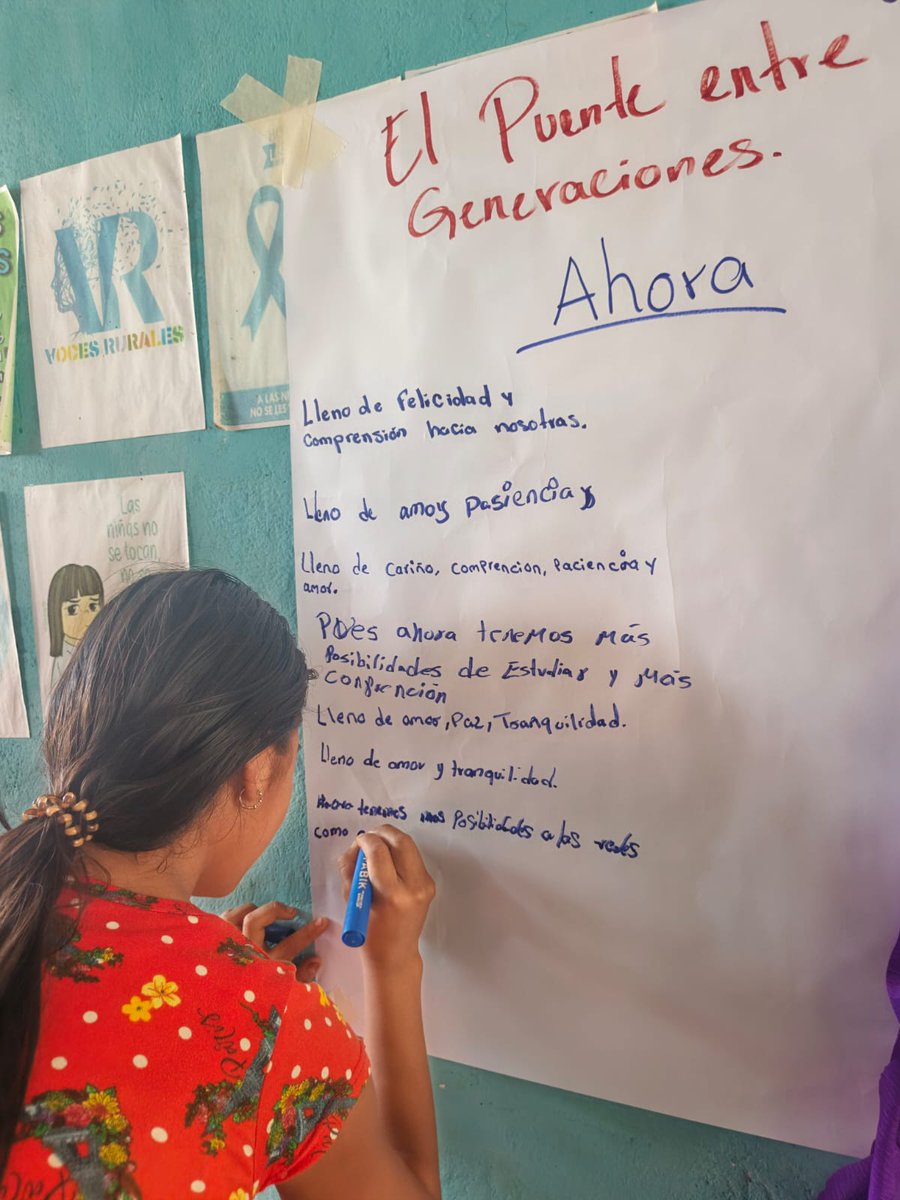 El Puente entre
Generaciones.
Ahora
Lleno de felicidad y
comprensión hacia nosotras.
Lleno de amor pasiencia y
Lleno de cariño, comprencion, Paciencia y
amor.
Pues ahora tenemos más
Posibilidades de Estudiar y Más
Lleno de amor, Paz, Tranquilidad.
Lleno de amor y tranquilidad.
Ahora tenemos mas Posibilidades a las redes
como
VR
VOCES RURALES
A LAS
NO SE LES
Las
niñas no
se tocan,
no